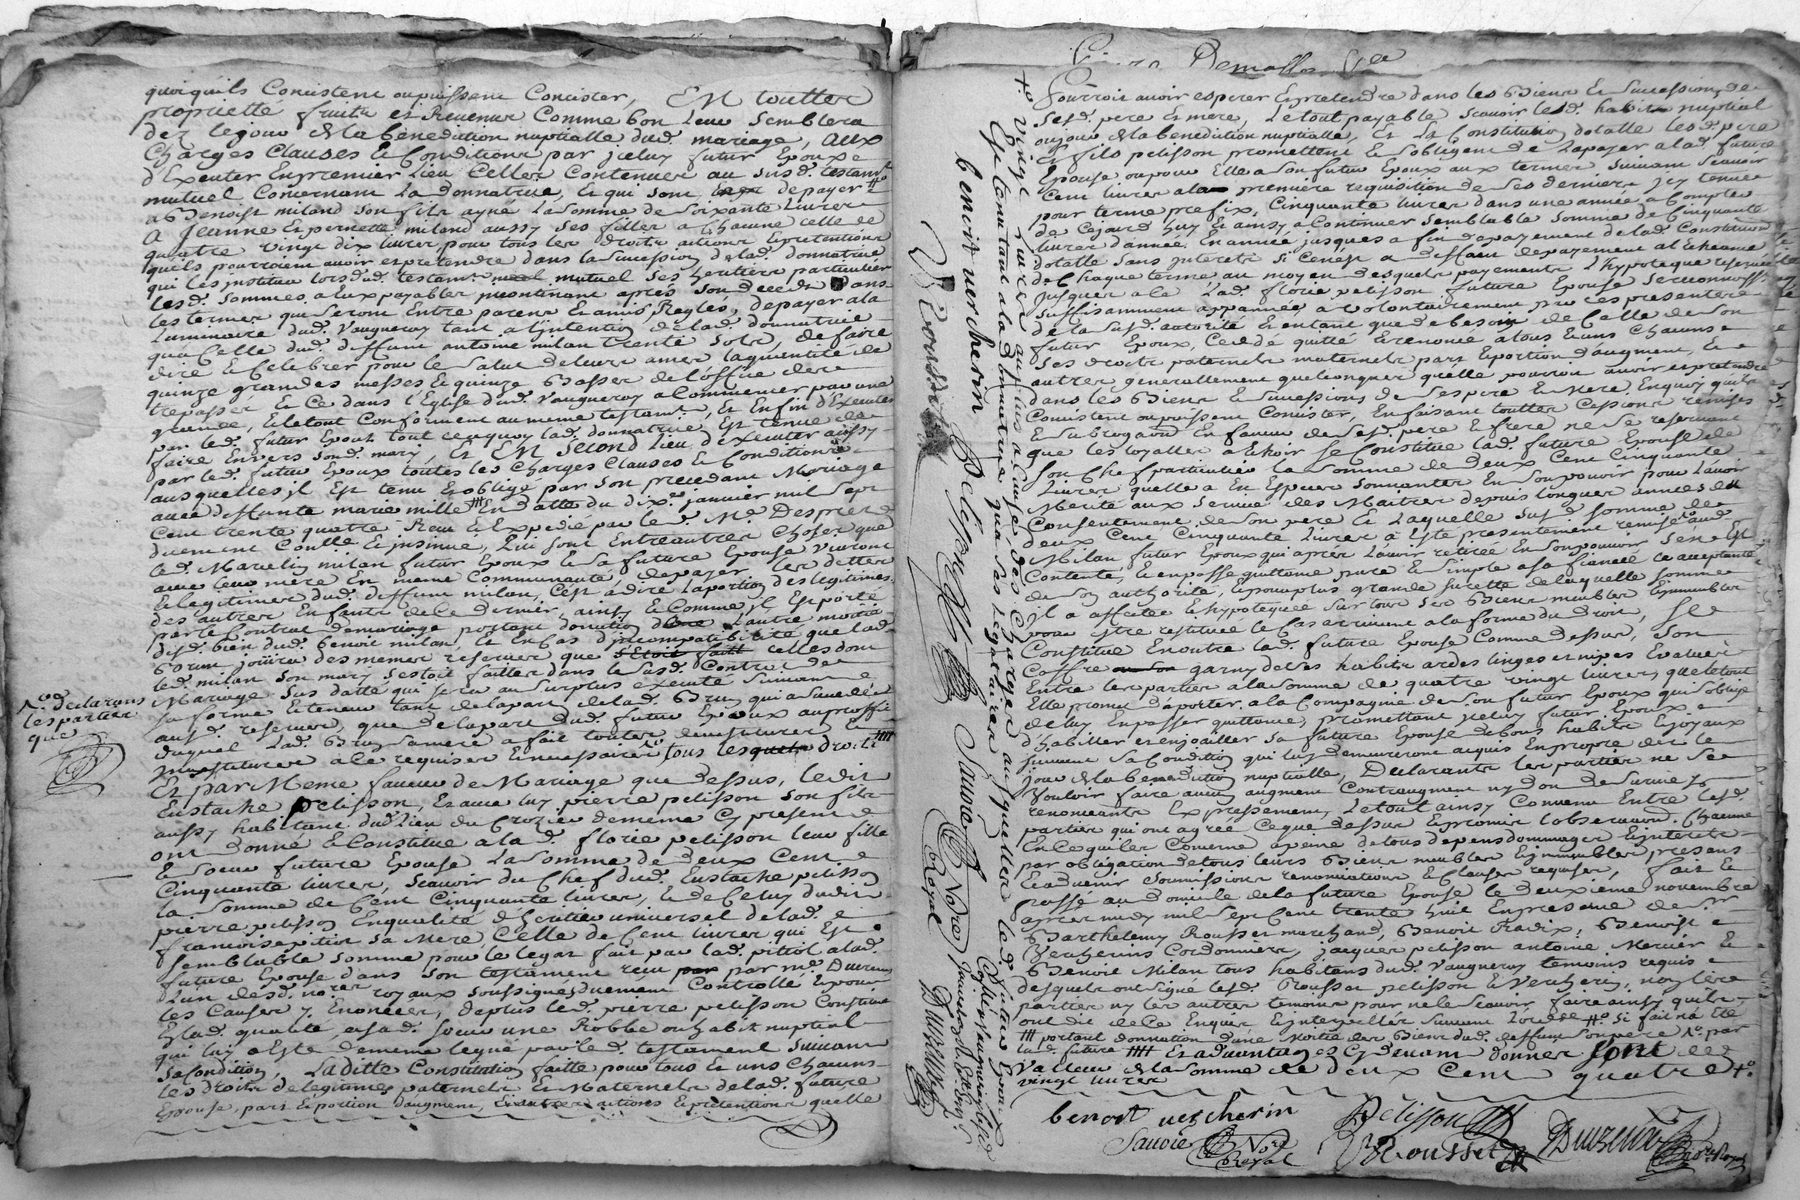 quoiqu'ils Concistent ou puissent Concister, En touttes
proprietté fruits et Revenus Comme bon Leur Semblera
dez le jour de la benediction nuptialle dud. mariage, aux
Charges Clauses & Conditions par jceluy futur Epoux
d'Executer En premier Lieu Celles Contenues au susd. testamt
mutuel Concernant La donnatrice, & qui sont de payer
a Benoist miland son fils ayné La somme de Soixante Livres
A Jeanne & pernette miland aussy ses filles a Chacune celle de
quatre vingt dix livres pour tous les droits actions & pretentions
quels pourroient avoir et pretendre dans la succession de lad. donnatrice
qui les jnstitua lors dud. testamt mutuel ses heritiers particuliers
lesd. sommes a Eux payables maintenant apres son deceds dans
les termes que seront Entre parens & amis Reglés, de payer a la
Luminaire dud. Vaugneray tant a l'intention de lad. donnatrice
qua Celle dud. deffunt antoine milan trente sols, de faire
dire & Celebrer pour le salut de leurs ames la quentité de
quinze grandes messes & quinze Basses de l'office des
trepassez & Ce dans l'Eglise dud. Vaugneray a Commencer par une
grande, & le tout Conformement au meme testamt, Et Enfin d'Executer
par led. futur Epoux tout ce a quoy lad. donnatrice Est tenue de
faire Envers sond. mary, Et En Second Lieu d'Executer aussy
par led. futur Epoux touttes les Charges Clauses & Conditions
ausquelles jl Est tenu & obligé par son precedant Mariage
avec deffunte marie mille En datte du dixe janvier mil sept
Cent trente quatre Receu & Expedié par led. Me Desprez
duement Conllé & jnsinué, Qui sont Entre autres Choses que
led. Marcelin milan futur Epoux & sa future Epouse Vivront
avec leur mere En meme Communauté, de payer les dettes
& legitimes dud. deffunt milan, C'est a dire la portion des legitimes
des autres Enfants de ce dernier, ainsy & Comme jl Est porté
par le Contrat de mariage portant donnation de l'autre moitié
desd. bien dud. benoit milan, Et En Cas d'jncompatibilité que lad.
Brun jouira des memes reserves que celles dont
led. milan son mary s'estoit faittes dans le susd. Contrat de
Mariage sus datté qui sera au surplus executé suivant
sa forme & teneur tant de la part de lad. Brun qui a
ausd. reserves, que de la part dud. futur Epoux au proffit
duquel Lad. Brun sa mere a fait touttes demissions &
a le requiser & necessaires tous les droits
No declarans
les parties
que
Et par Meme faveur de Mariage que dessus, ledit
Eustache Pelisson, Et avec luy pierre pelisson son fils
aussy habitant dud. Lieu du Crozie de meme Cy present
ont donné & Constitué a lad. florie pelisson leur fille
& soeur future Epouse La somme de deux Cent
Cinquante livres, scavoir du Chef dud. Eustache pelisson
la somme de Cent Cinquante livres, & de Celuy dudit
pierre pelisson En qualité d'heritier universel de lad.
francoise pitiot sa Mere, Celle de Cent livres qui Est
semblable somme pour le legat fait par lad. pitiot a lad.
future Epouse dans son testament receu par me Duvernay
L'un desd. nores royaux soussignés duement Controllé & pour
les Causes y Enoncées, de plus led. pierre pelisson Constitue
Eslad. qualité, a sad. soeur une Robbe ou habit nuptial
qui luy a Esté de meme legué par led. testament suivant
sa condition, Laditte Constitution faitte pour tous & uns Chacuns
les droits de legitimes paternels & Maternels de lad. future
Epouse, part & portion d'augment, & autres actions & pretentions quelle
Pourroit avoir esperer & pretendre dans les Biens & successions de
sesd. pere et mere, Le tout payable scavoir lesd. habits nuptial
au jour de la benediction nuptialle, Et La Constitution dotalle lesd. pere
& fils pelisson promettent & s'obligent de La payer a lad. future
Epouse ou pour Elle a son futur Epoux aux termes suivant scavoir
Cent livres a la premiere requisition de ces derniers jcy tenue
pour terme prefix, Cinquante livres dans une année a Compter
de Cejourd'huy & ainsy a Continuer semblable somme de Cinquante
livres d'année En année jusques a fin de payement de lad. Constitution
dotalle sans jnterets si Ce n'est a deffaut de payement a l'echeance
de Chaque terme au moyen desquels payements L'hypoteque reservée
jusques a Ce Lad. florie pelisson future Epouse se reconnoist
suffisamment appannée a volontairement par ces presentes
de la susd. autorité & en tant que de besoin de Celle de son
futur Epoux, Cedé quitté & renoncé a tous & uns Chacuns
ses droits paternels maternels part & portion d'augment, &
autres generallement quelconques quelle pourroit avoir et pretendre
dans les Biens & successions de ses pere & Mere En quoy quils
Concistent ou puissent Concister, En faisant touttes Cessions remises
& subrogations En faveur de sesd. pere & frere ne se reservant
que les loyalles a Echoir se Constitue lad. future Epouse de
son Chef particulier la somme de deux Cent Cinquante
Livres quelle a En Especes sonnantes En son pouvoir pour l'avoir
Merité aux services des Maitres depuis longues années du
Consentement de son pere & Laquelle susd. somme de
deux Cent Cinquante Livres a Esté presentement remise aud.
Milan futur Epoux qui apres l'avoir retirée En son pouvoir s'en est
Contenté, & en passe quittance pure & simple a sa fiancée ce acceptante
de son authorité, & pour plus grande surette de laquelle somme
jl a affecté & hypotequé sur tous ses Biens meubles & jmmeubles
pour Estre restituée le Cas arrivant a la forme du droit, Se
Constitue En outre lad. future Epouse Comme dessus, son
Coffre garny de ses habits ardes linges et nipes Evalués
Entre les parties a la somme de quatre vingt livres, que le tout
Elle promet d'aporter a la Compagnie de son futur Epoux qui s'oblige
de luy En passer quittance, promettant jceluy futur Epoux
d'habiller et enjoailler sa future Epouse de bons habits & joyaux
suivant sa Condition qui luy demeureront acquis En propre dez le
jour de la benediction nuptialle, Declarants les parties ne se
Vouloir faire aucun augment Contraugment ny don de survie y
renoncants Expressement, Le tout ainsy Convenu Entre lesd.
parties qui ont agreé Ce que dessus & promis l'observation Chacune
En Ce qui les Concerne a peine de tous depens dommages & jnterets
par obligation de tous leurs Biens meubles & jmmeubles presens
& advenir soumissions renonciations & Clauses requises, fait &
passé au domicile de la future Epouse le deuxieme novembre
apres midy mil sept Cent trente huit En presence de sr
Barthelemy Rousset marchand, Benoit Radix, Benoist
Vercherin Cordonnier, jacques pelisson antoine Mercier &
Benoit Milan tous habitans dud. Vaugneray temoins requis
desquels ont signé lesd. Rousset pelisson & Vercherin, non les
parties ny les autres temoins pour ne le scavoir faire ainsy quils
ont dit de Ce Enquis & jnterpellés suivant L'ordce si fait na Eté
portant donnation d'une Moitié des Biens dud. deffunt son pere No par
lad. future Et advantages Cy devant donnés sont de
Valleur de la somme de deux Cent quatre
vingt livres
benoit vercherin Pelisson
Savoie Nore Royal Rousset Duvernay
vingt Livres au plus a Cause des Charges ausquelles led. futur Epoux
Est tenu tant a la donnatrice qua ses Legataires
benoit vercherin Pelisson Savoie Nore Royal
Rousset Duvernay